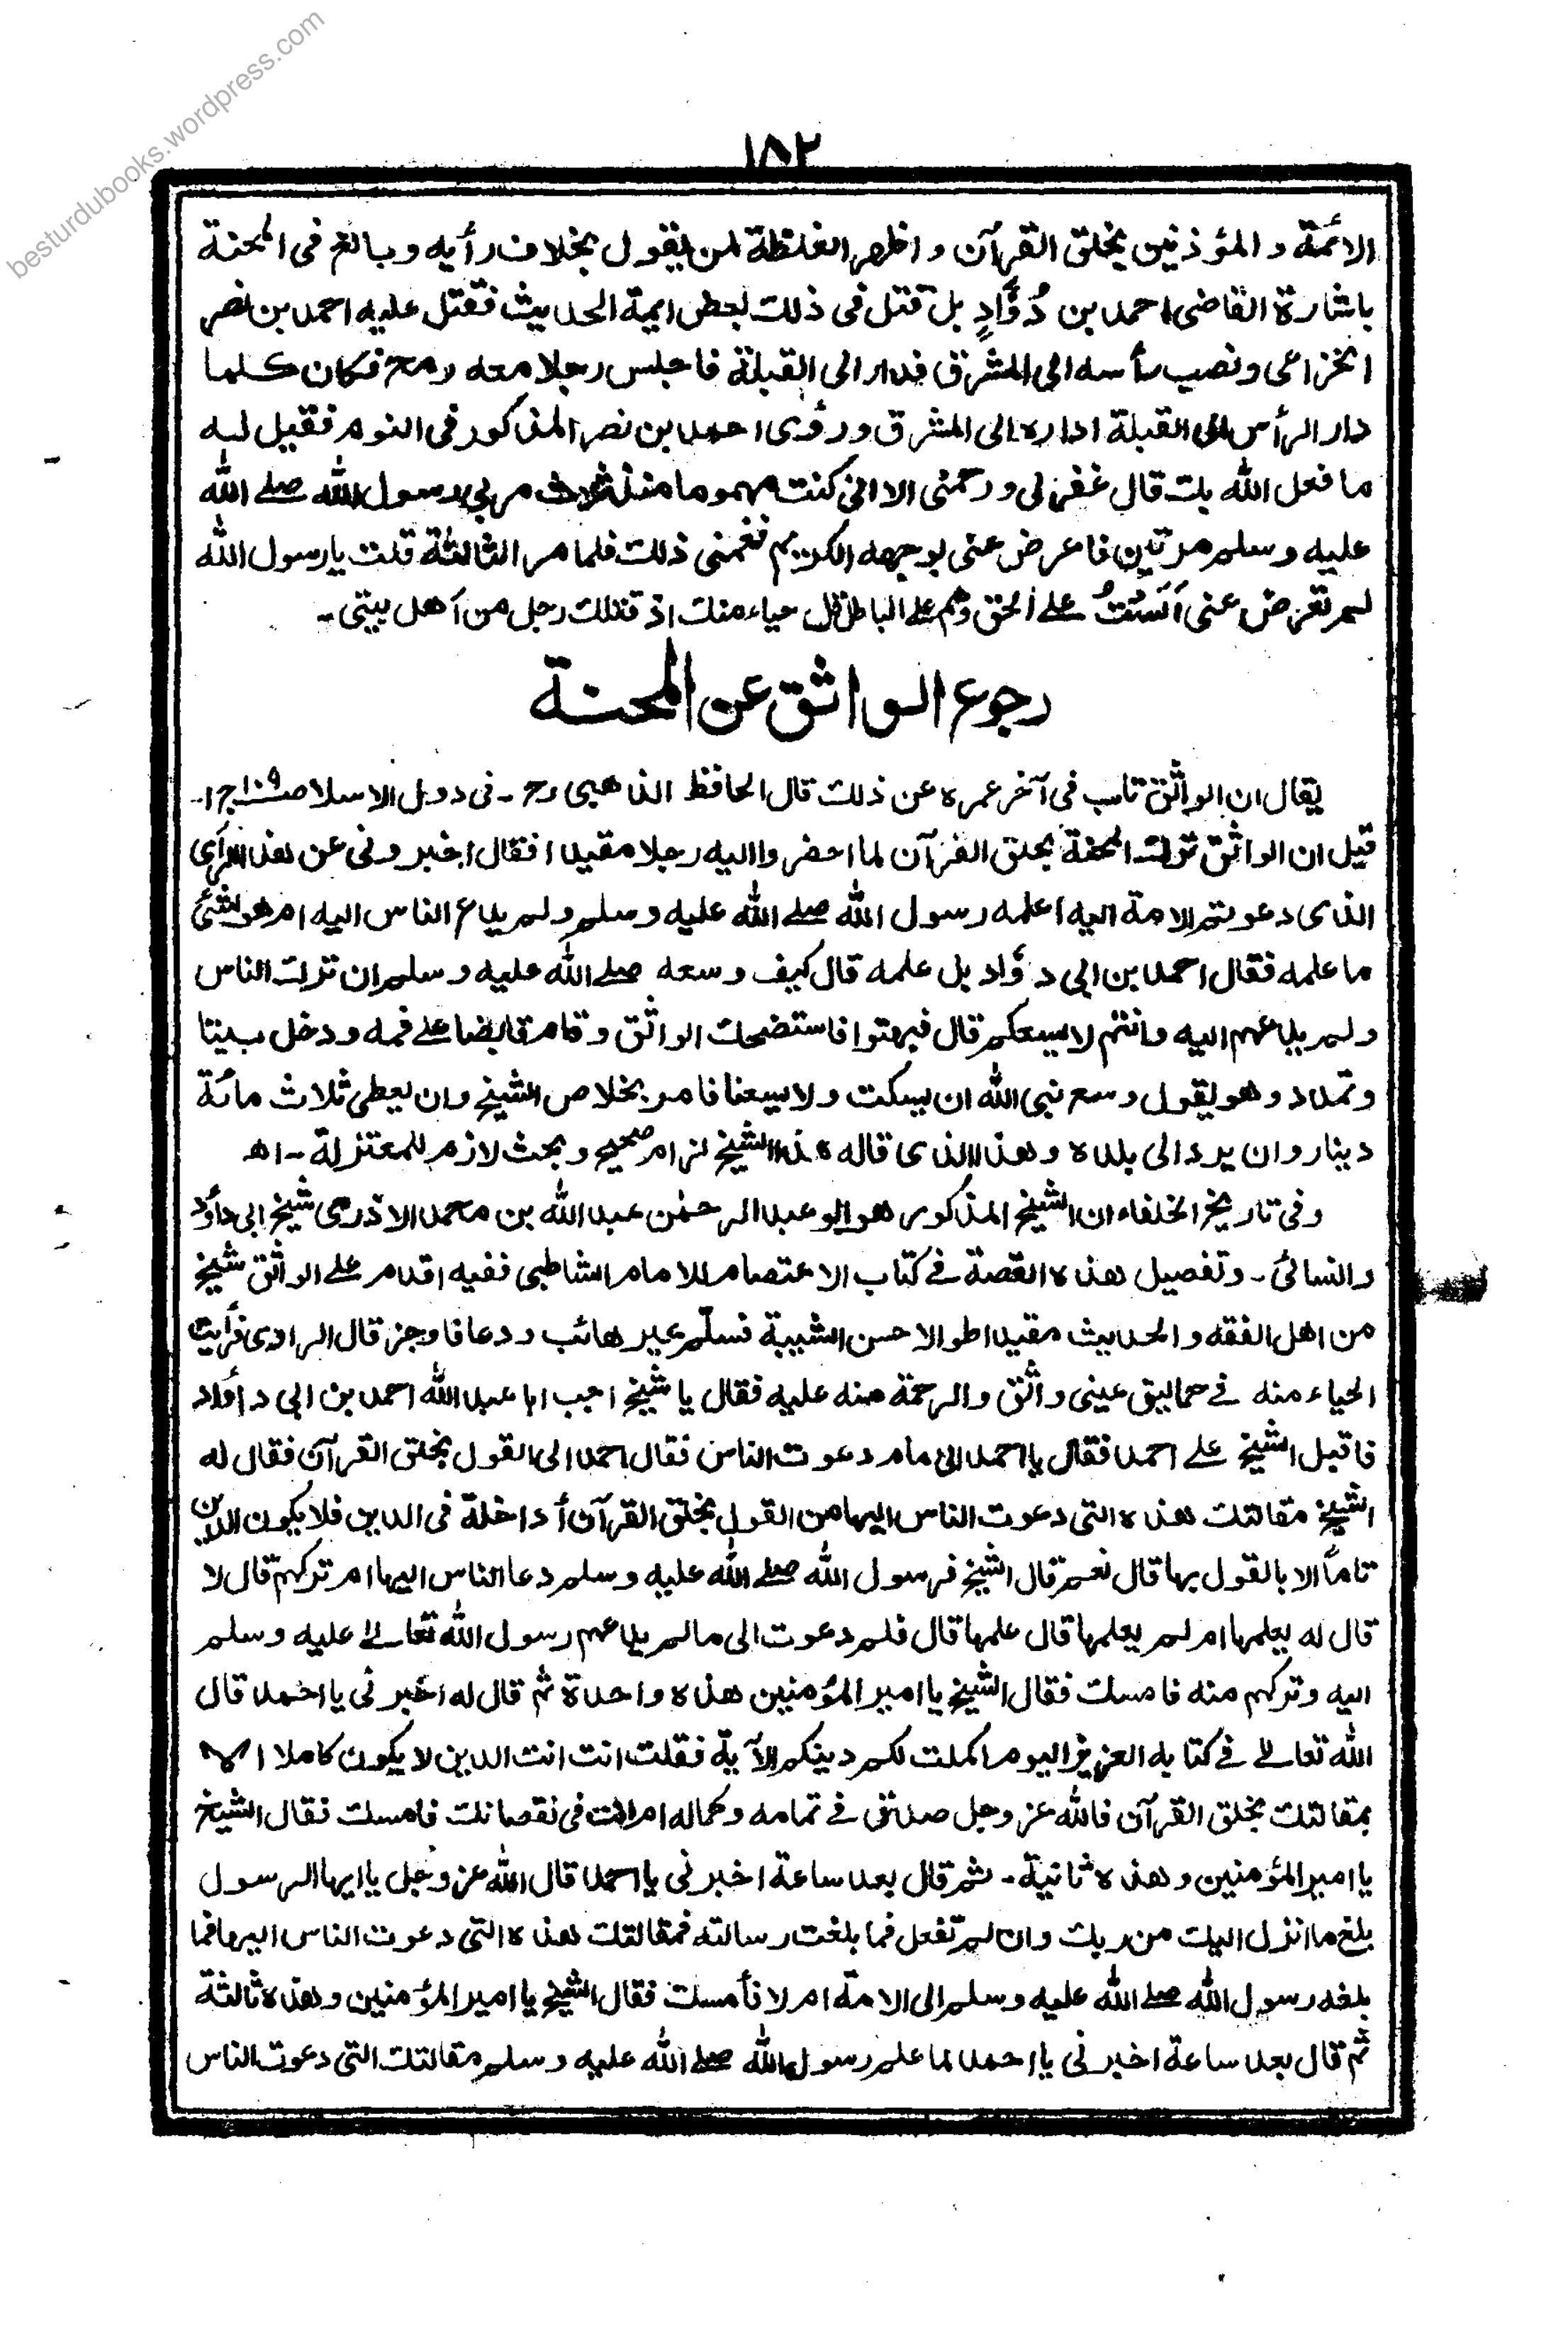 besturdubooks.wordpress.com
١٥٢
الائمة والمؤذنين بخلق القرآن واظهر الغلظة لمن يقول بخلاف رأيه وبالغ فى المحنة
باشارة القاضى احمد بن دُؤَادٍ بل قتل فى ذلك بعض ايمة الحديث فقتل عليه احمد بن نصر
الخزاعى ونصب رأسه الى المشرق فدار الى القبلة فاجلس رجلا معه رمح فكان كلما
دار الرأس الى القبلة اداره الى المشرق ورؤى احمد بن نصر المذكور فى النوم فقيل له
ما فعل الله بك قال غفر لى ورحمنى الا انى كنت مهموما منذ ثلاث مر بى رسول الله صلے الله
عليه وسلم مرتين فاعرض عنى بوجهه الكريم فغمنى ذلك فلما مر الثالثة قلت يا رسول الله
لم تعرض عنى اَلَسْتُ علے الحق وهم علے الباطل قال حياء منك اذ قتلك رجل من آهل بيتى۔
رجوع الواثق عن المحنة
يقال ان الواثق تاب فى آخر عمره عن ذلك قال الحافظ الذهبى رح ۔ فى دول الاسلام ص١٠٩ ج١۔
قيل ان الواثق ترك المحنة بخلق القرآن لما احضروا اليه رجلا مقيدا فقال اخبرونى عن هذا الرأى
الذى دعوتم الامة اليه اعلمه رسول الله صلے الله عليه وسلم ولم يدع الناس اليه ام هو شئ
ما علمه فقال احمد بن ابى دؤاد بل علمه قال كيف وسعه صلے الله عليه وسلم ان ترك الناس
ولم يدعهم اليه وانتم لا يسعكم قال فبهتوا فاستضحك الواثق وقام قابضا علے فمه ودخل بيتا
وتمدد وهو يقول وسع نبى الله ان يسكت ولا يسعنا فامر بخلاص الشيخ وان يعطى ثلاث مائة
دينار وان يرد الى بلده وهذا الذى قاله هذا الشيخ الزام صحيح وبحث لازم للمعتزلة ۔ اھ
وفى تاريخ الخلفاء ان الشيخ المذكور هو ابو عبد الرحمٰن عبد الله بن محمد الاذرمى شيخ ابى داؤد
والنسائى ۔ وتفصيل هذه القصة فے كتاب الاعتصام للامام الشاطبى ففيه اقدام علے الواثق شيخ
من اهل الفقه والحديث مقيدا طوالا حسن الشيبة فسلّم غير هائب ودعا فاوجز قال الراوى فرأيت
الحياء منه فے حماليق عينى واثق والرحمة منه عليه فقال يا شيخ اجب ابا عبد الله احمد بن ابى دآؤاد
فاقبل الشيخ علے احمد فقال يا احمد الى مام دعوت الناس فقال احمد الى القول بخلق القرآن فقال له
الشيخ مقالتك هذه التى دعوت الناس اليها من القول بخلق القرآن أداخلة فى الدين فلا يكون الدين
تاماً الا بالقول بها قال نعم قال الشيخ فرسول الله صلے الله عليه وسلم دعا الناس اليها ام تركهم قال لا
قال له يعلمها ام لم يعلمها قال علمها قال فلم دعوت الى ما لم يدعهم رسول الله تعالے عليه وسلم
اليه وتركهم منه فامسك فقال الشيخ يا امير المؤمنين هذه واحدة ثم قال له اخبرنى يا احمد قال
الله تعالے فے كتابه العزيز اليوم اكملت لكم دينكم الآية فقلت انت انت الدين لا يكون كاملا الا
بمقالتك بخلق القرآن فالله عز وجل صدق فے تمامه وكماله ام انت فى نقصانك فامسك فقال الشيخ
يا امير المؤمنين وهذه ثانية ۔ ثم قال بعد ساعة اخبرنى يا احمد قال الله عز وجل يا ايها الرسول
بلغ ما انزل اليك من ربك وان لم تفعل فما بلغت رسالته فمقالتك هذه التى دعوت الناس اليها فما
بلغه رسول الله صلے الله عليه وسلم الى الامة ام لا فأمسك فقال الشيخ يا امير المؤمنين وهذه ثالثة
ثم قال بعد ساعة اخبرنى يا احمد لما علم رسول الله صلے الله عليه وسلم مقالتك التى دعوت الناس